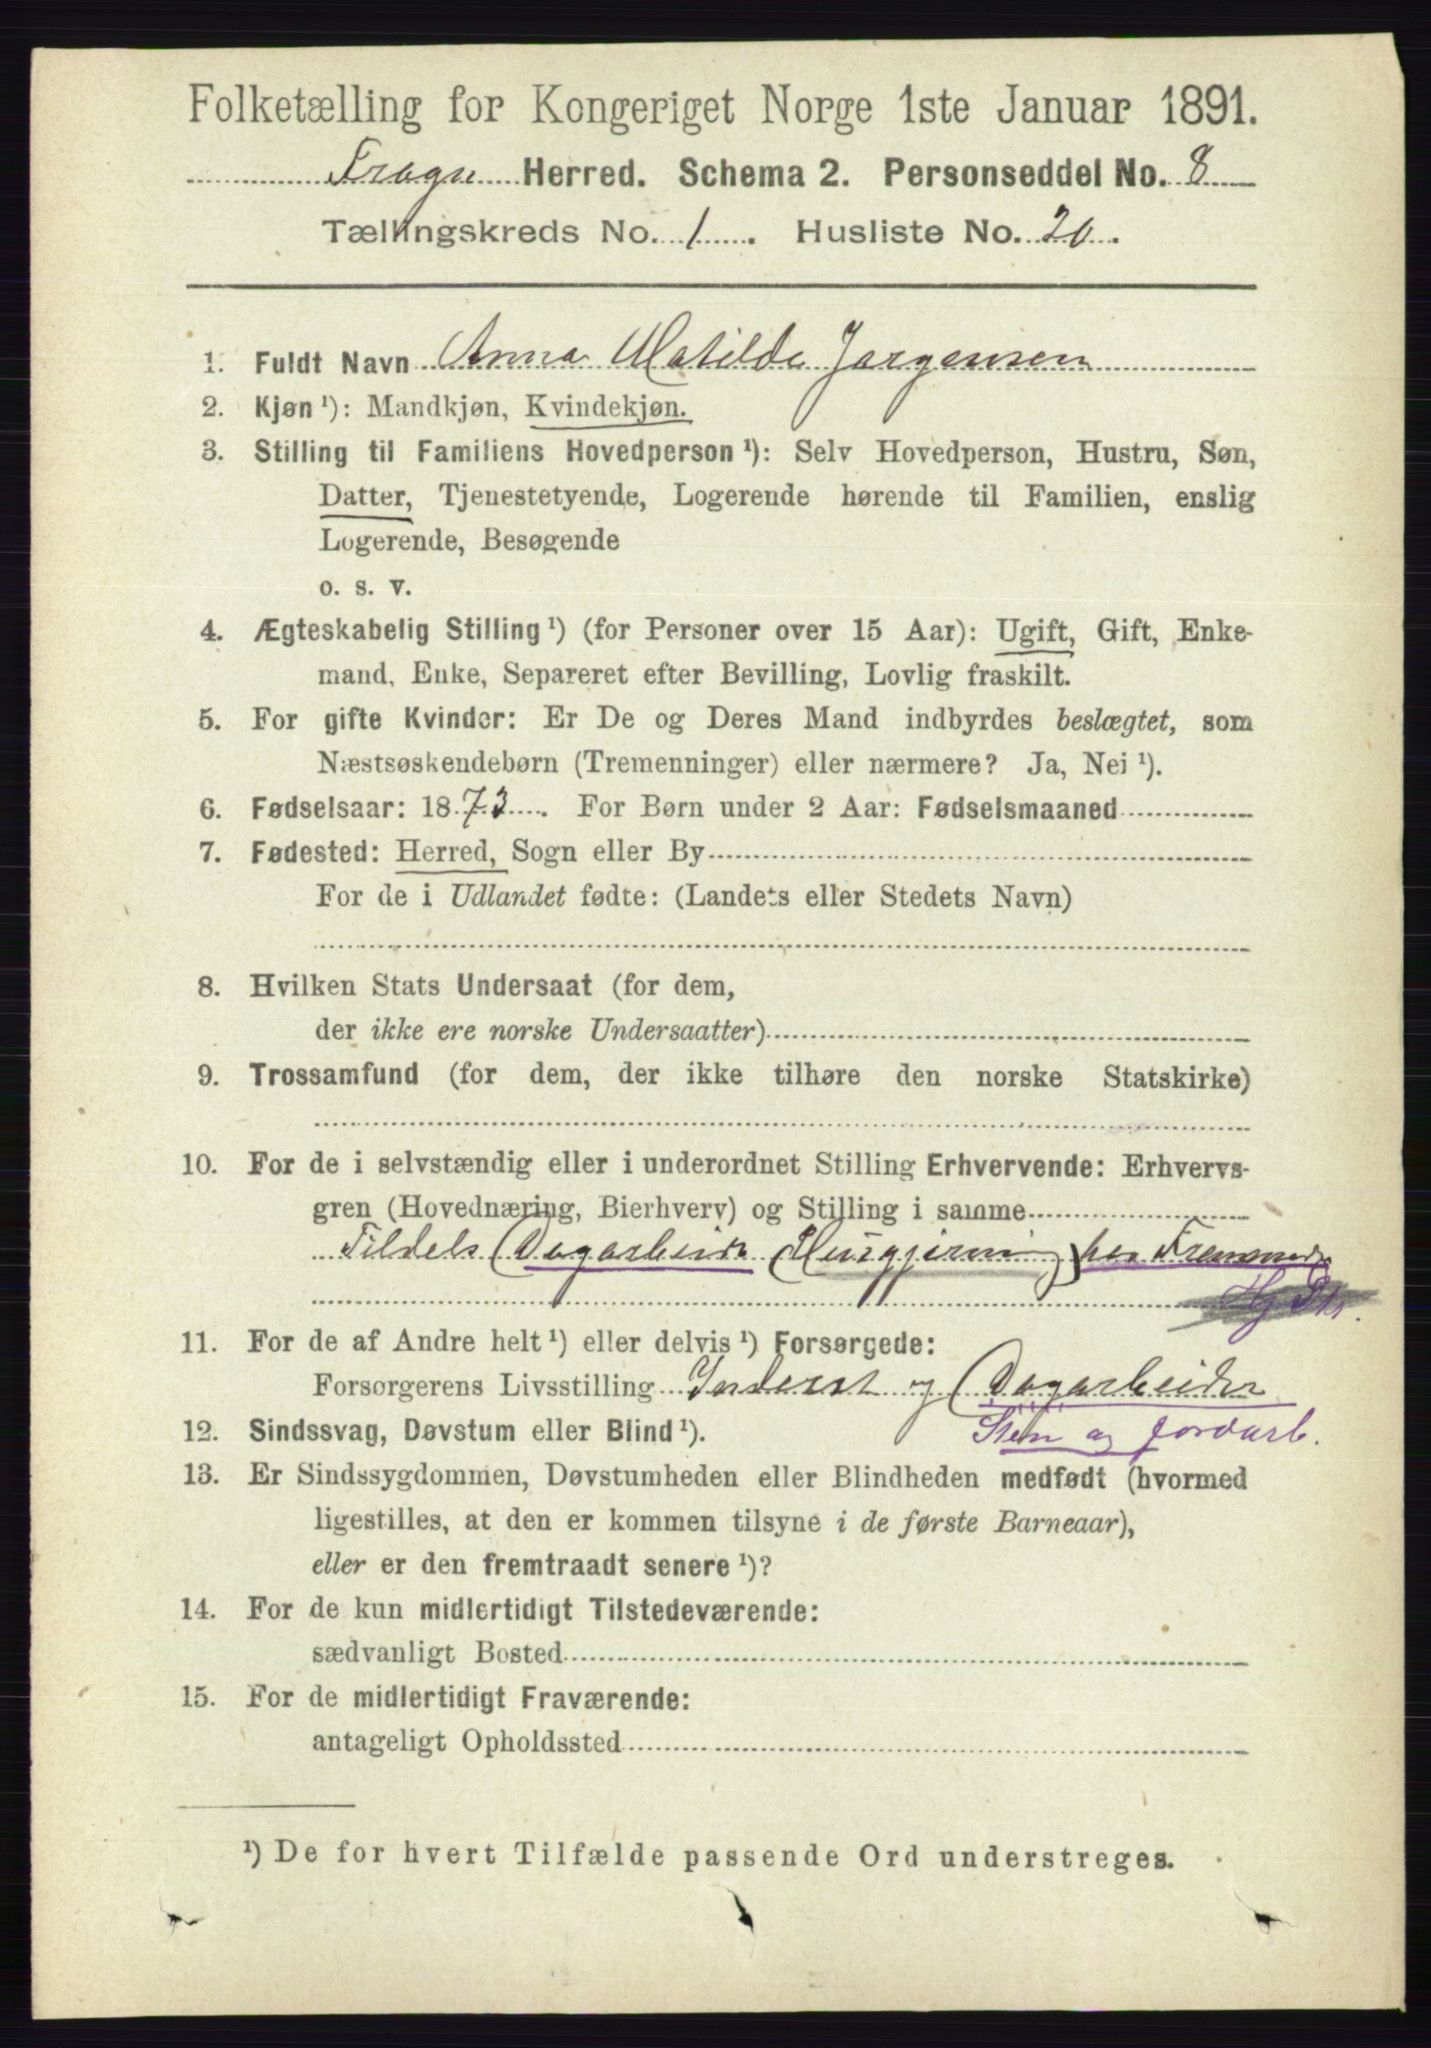 Folketælling for Kongeriget Norge 1ste Januar 1891.
Frogn Herred. Schema 2. Personseddel No. 8
Tællingskreds No. 1. Husliste No. 20.
1. Fuldt Navn Anna Matilde Jørgensen
2. Kjøn ¹): Mandkjøn, Kvindekjøn.
3. Stilling til Familiens Hovedperson ¹): Selv Hovedperson, Hustru, Søn,
Datter, Tjenestetyende, Logerende hørende til Familien, enslig
Logerende, Besøgende
o. s. v.
4. Ægteskabelig Stilling ¹) (for Personer over 15 Aar): Ugift, Gift, Enke-
mand, Enke, Separeret efter Bevilling, Lovlig fraskilt.
5. For gifte Kvinder: Er De og Deres Mand indbyrdes beslægtet, som
Næstsøskendebørn (Tremenninger) eller nærmere? Ja, Nei ¹).
6. Fødselsaar: 1873. For Børn under 2 Aar: Fødselsmaaned
7. Fødested: Herred, Sogn eller By
For de i Udlandet fødte: (Landets eller Stedets Navn)
8. Hvilken Stats Undersaat (for dem,
der ikke ere norske Undersaatter)
9. Trossamfund (for dem, der ikke tilhøre den norske Statskirke)
10. For de i selvstændig eller i underordnet Stilling Erhvervende: Erhvervs-
gren (Hovednæring, Bierhverv) og Stilling i samme
Tildels Dagarbeide (Husgjerning) hos Fremmede
11. For de af Andre helt ¹) eller delvis ¹) Forsørgede:
Forsørgerens Livsstilling Inderst og Dagarbeider
Sten og Jordarb.
12. Sindssvag, Døvstum eller Blind ¹).
13. Er Sindssygdommen, Døvstumheden eller Blindheden medfødt (hvormed
ligestilles, at den er kommen tilsyne i de første Barneaar),
eller er den fremtraadt senere ¹)?
14. For de kun midlertidigt Tilstedeværende:
sædvanligt Bosted
15. For de midlertidigt Fraværende:
antageligt Opholdssted
¹) De for hvert Tilfælde passende Ord understreges.